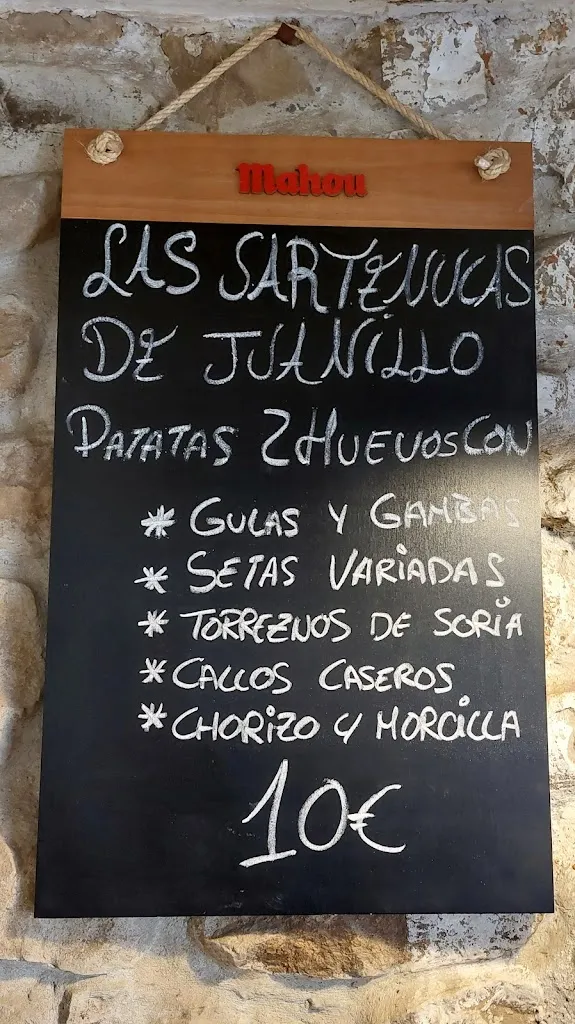 Mahou
LAS SARTENUCAS
DE JUANILLO
PATATAS 2 HUEVOS CON
* GULAS Y GAMBAS
* SETAS VARIADAS
* TORREZNOS DE SORIA
* CALLOS CASEROS
* CHORIZO Y MORCILLA
10€